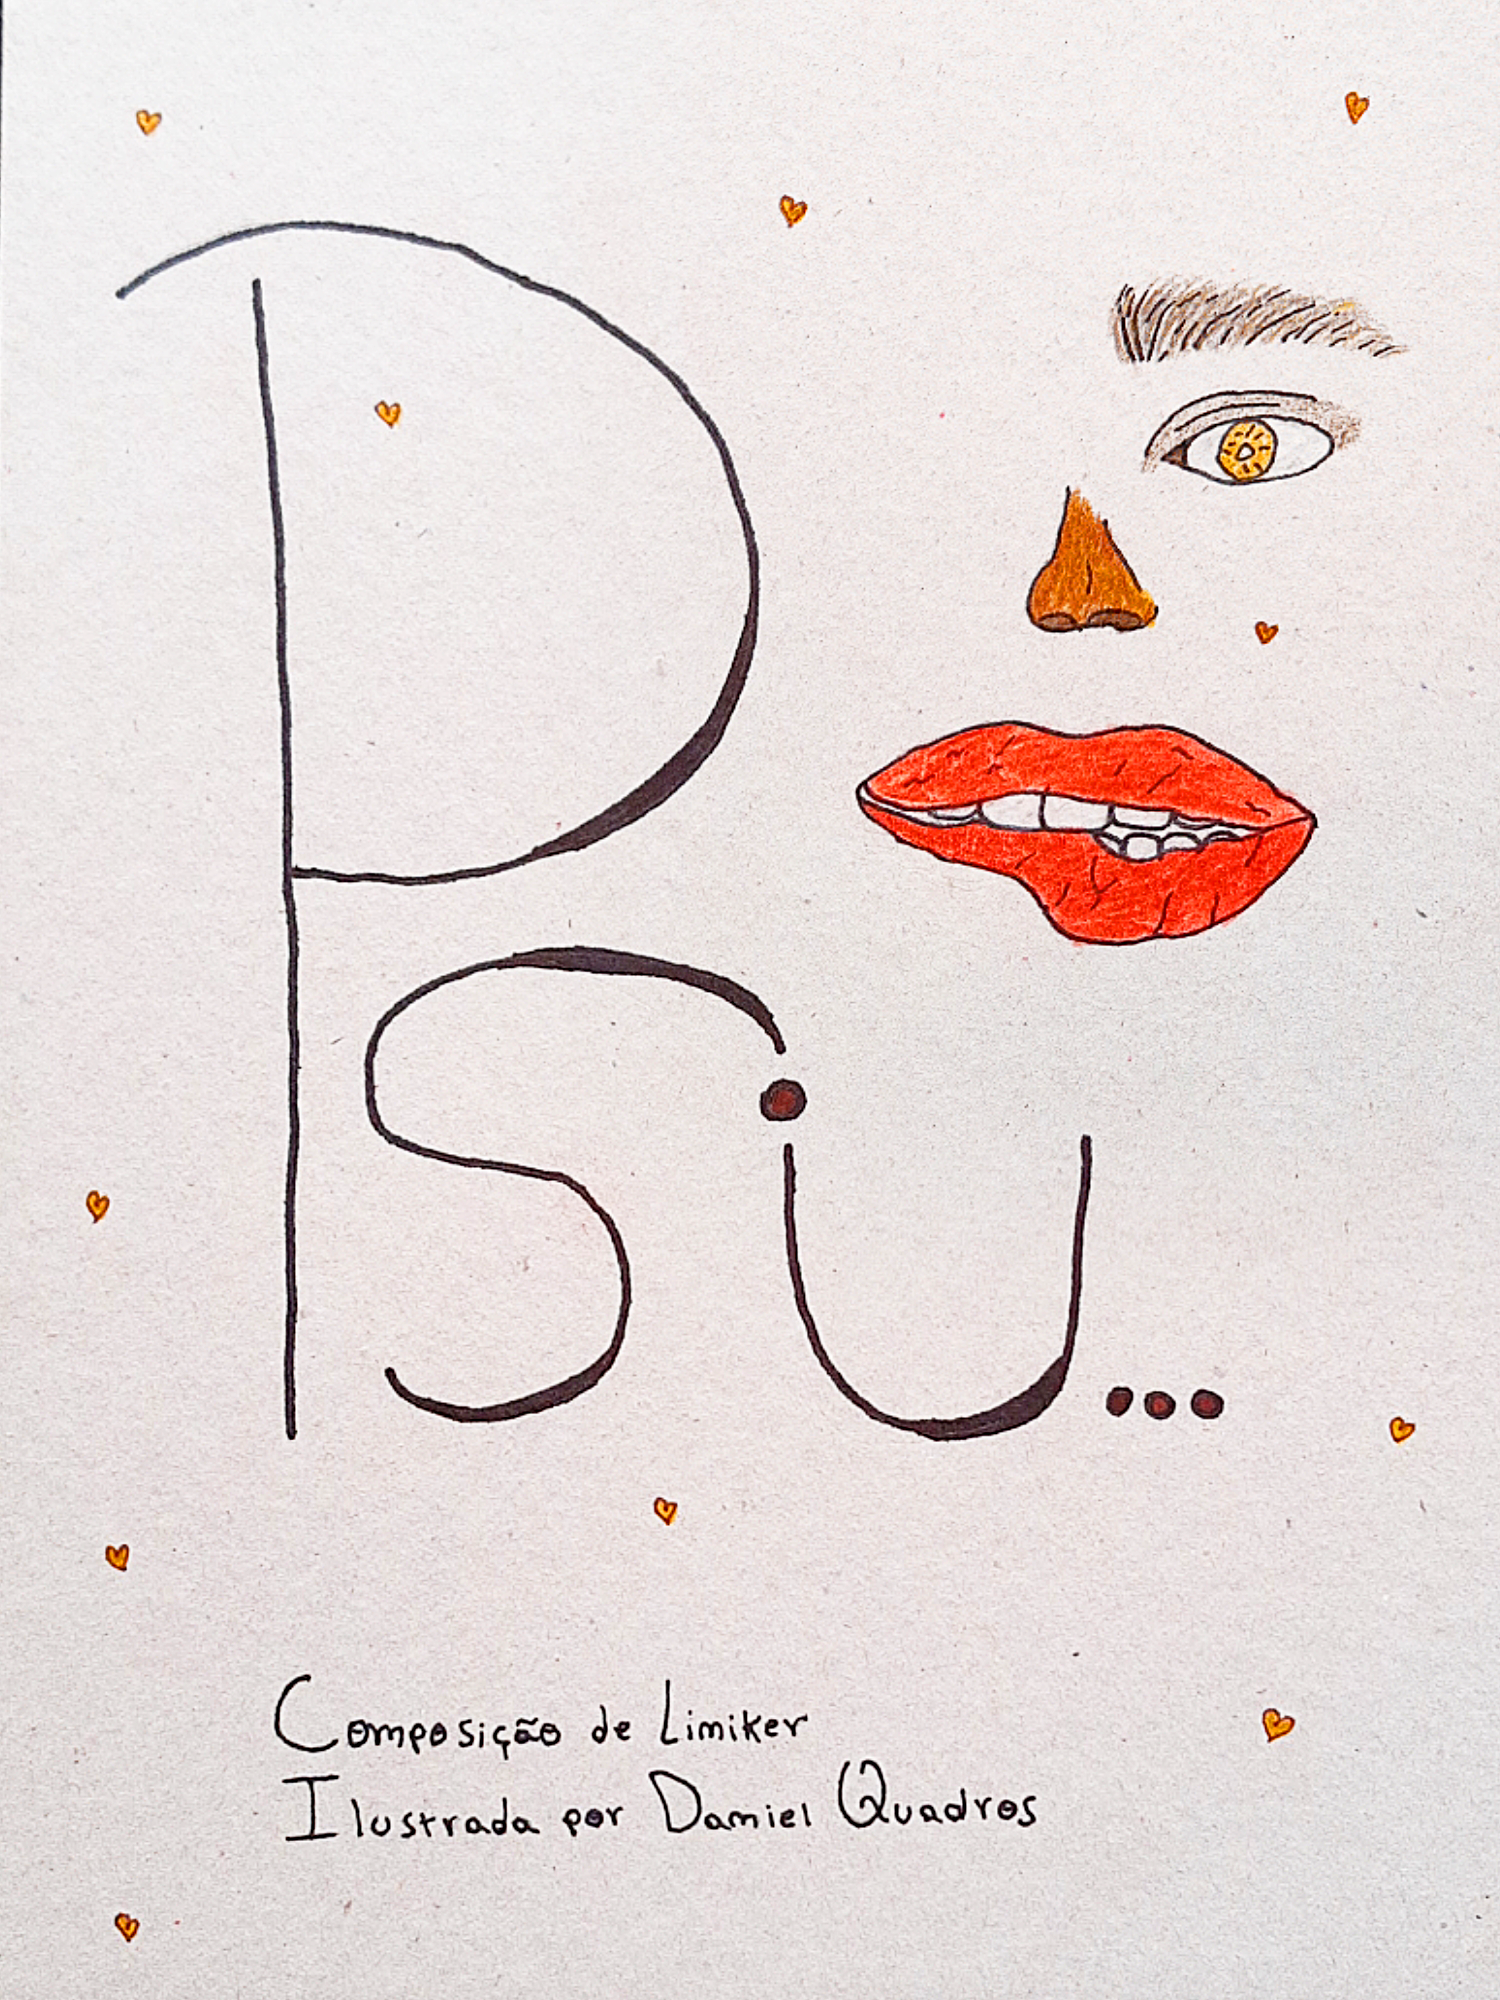 Psiu...
Composição de Liniker
Ilustrada por Daniel Quadros